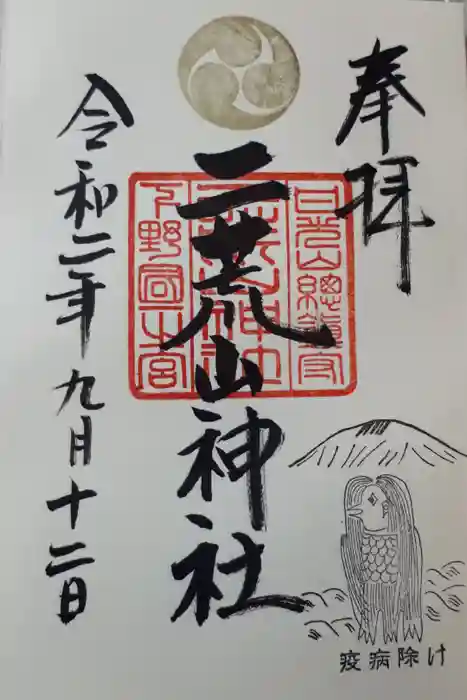 奉拝
日光山總鎮守
二荒山神社
下野國一宮
令和二年九月十二日
疫病除け